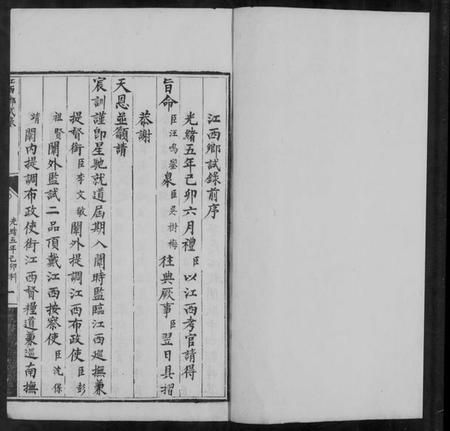 江西鄉試錄前序
光緒五年己卯六月禮臣以江西考官請得
旨命臣汪鳴鑾臬臣吳樹梅往典厥事臣翌日具摺
恭謝
天恩並籲請
宸訓謹即星馳就道屆期入闈時監臨江西巡撫兼
提督銜臣李文敏闈外提調江西布政使臣彭
祖賢闈外監試二品頂戴江西按察使臣沈保
靖闈內提調布政使銜江西督糧道兼巡南撫
江西鄉試錄
光緒五年己卯科